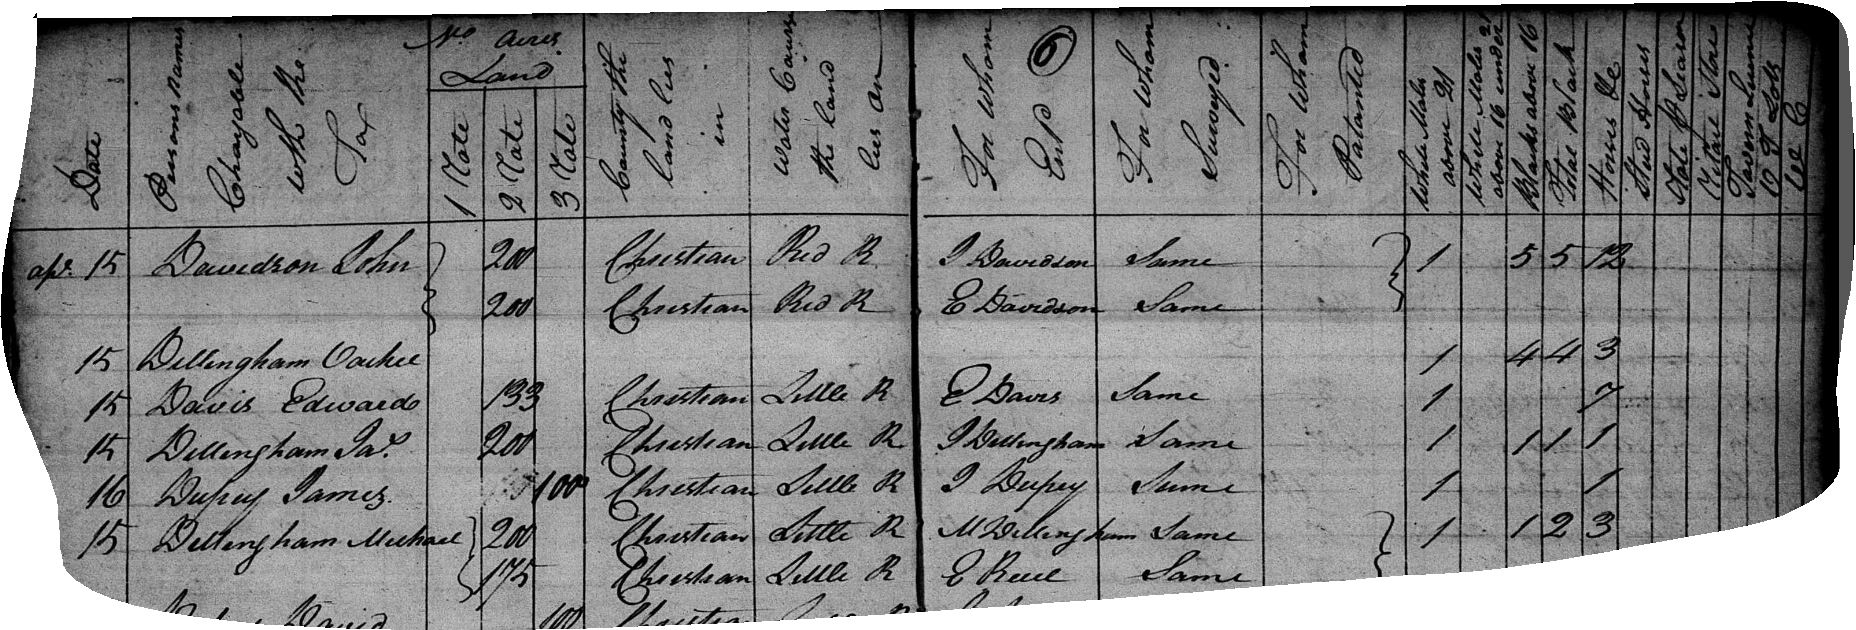 Date
Persons Names Chargable with the Tax
No Acres Land
1 Rate
2 Rate
3 Rate
County the land lies in
Water Course the land lies on
For Whom Ent
6
For Whom Surveyed
For Whom Patanted
White Males above 21
White Males above 16 under 21
Blacks above 16
Total Black
Horses &c
Stud Horses
Rate P Season
Retail Store
Tavern License
apl. 15 Davidson John 200 Christian Red R J Davidson Same 1 5 5 12
200 Christian Red R E Davidson Same
15 Dillingham 1 4 4 3
15 Davis Edward 133 Christian Little R E Davis Same 1 7
15 Dillingham Jas. 200 Christian Little R J Dillingham Same 1 1 1 1
16 Dupuy James 100 Christian Little R J Dupuy Same 1 1
15 Dillingham Michael 200 Christian Little R M Dillingham Same 1 1 2 3
175 Christian Little R E Same
David 100 Christian